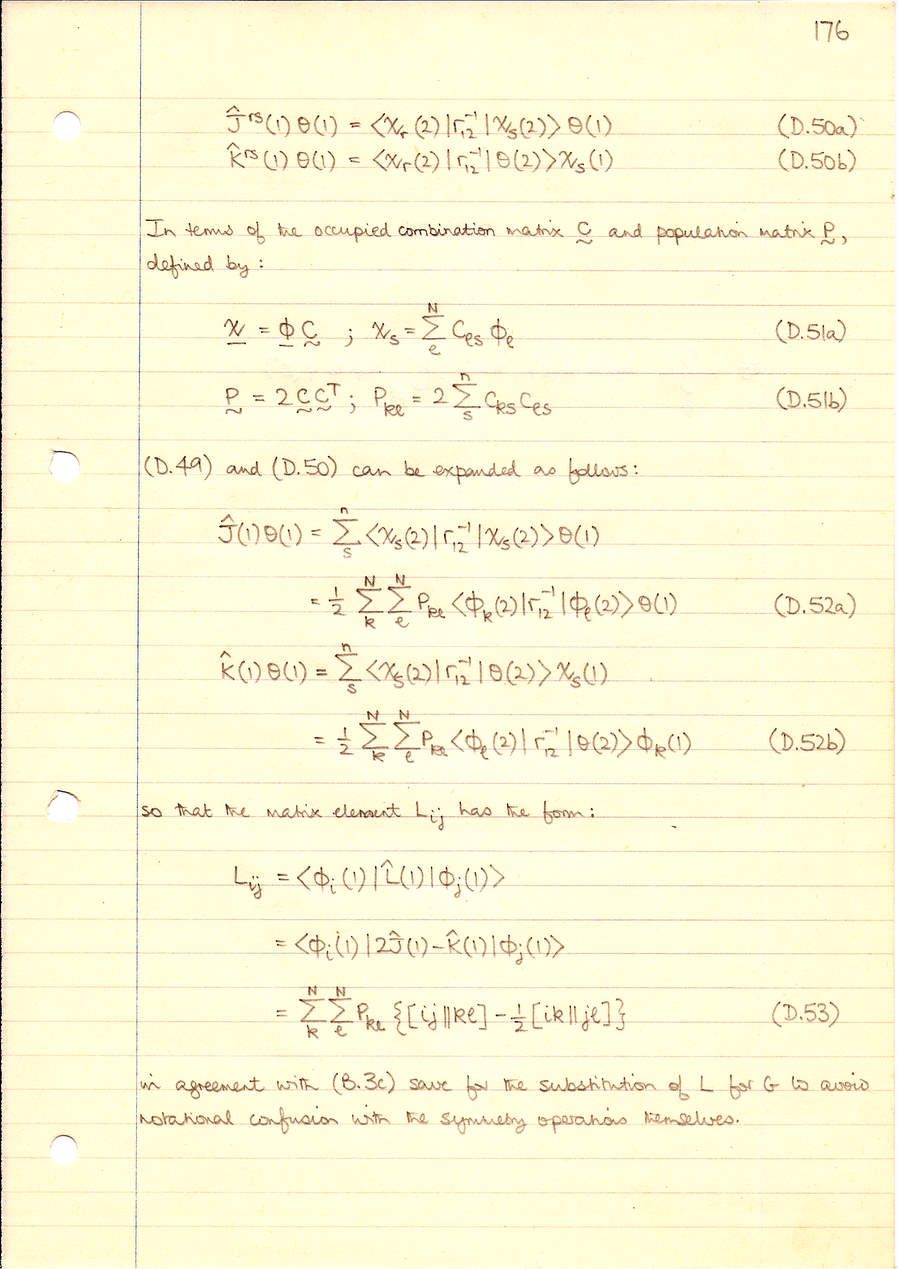 176
Ĵʳˢ(1) θ(1) = <χᵣ(2)|r₁₂⁻¹|χₛ(2)> θ(1) (D.50a)
K̂ʳˢ(1) θ(1) = <χᵣ(2)|r₁₂⁻¹|θ(2)> χₛ(1) (D.50b)
In terms of the occupied combination matrix C̰ and population matrix P̰,
defined by :
χ̲ = ϕ̲ C̰ ; χₛ = Σ_ℓ^N C_ℓs ϕ_ℓ (D.51a)
P̰ = 2 C̰ C̰ᵀ ; P_kℓ = 2 Σ_s^n C_ks C_ℓs (D.51b)
(D.49) and (D.50) can be expanded as follows :
Ĵ(1) θ(1) = Σ_s^n <χₛ(2)|r₁₂⁻¹|χₛ(2)> θ(1)
= ½ Σ_k^N Σ_ℓ^N P_kℓ <ϕ_k(2)|r₁₂⁻¹|ϕ_ℓ(2)> θ(1) (D.52a)
K̂(1) θ(1) = Σ_s^n <χₛ(2)|r₁₂⁻¹|θ(2)> χₛ(1)
= ½ Σ_k^N Σ_ℓ^N P_kℓ <ϕ_ℓ(2)|r₁₂⁻¹|θ(2)> ϕ_k(1) (D.52b)
so that the matrix element L_ij has the form :
L_ij = <ϕ_i(1)|L̂(1)|ϕ_j(1)>
= <ϕ_i(1)|2Ĵ(1) – K̂(1)|ϕ_j(1)>
= Σ_k^N Σ_ℓ^N P_kℓ {[ij||kℓ] – ½[ik||jℓ]} (D.53)
in agreement with (B.3c) save for the substitution of L for G to avoid
notational confusion with the symmetry operations themselves.